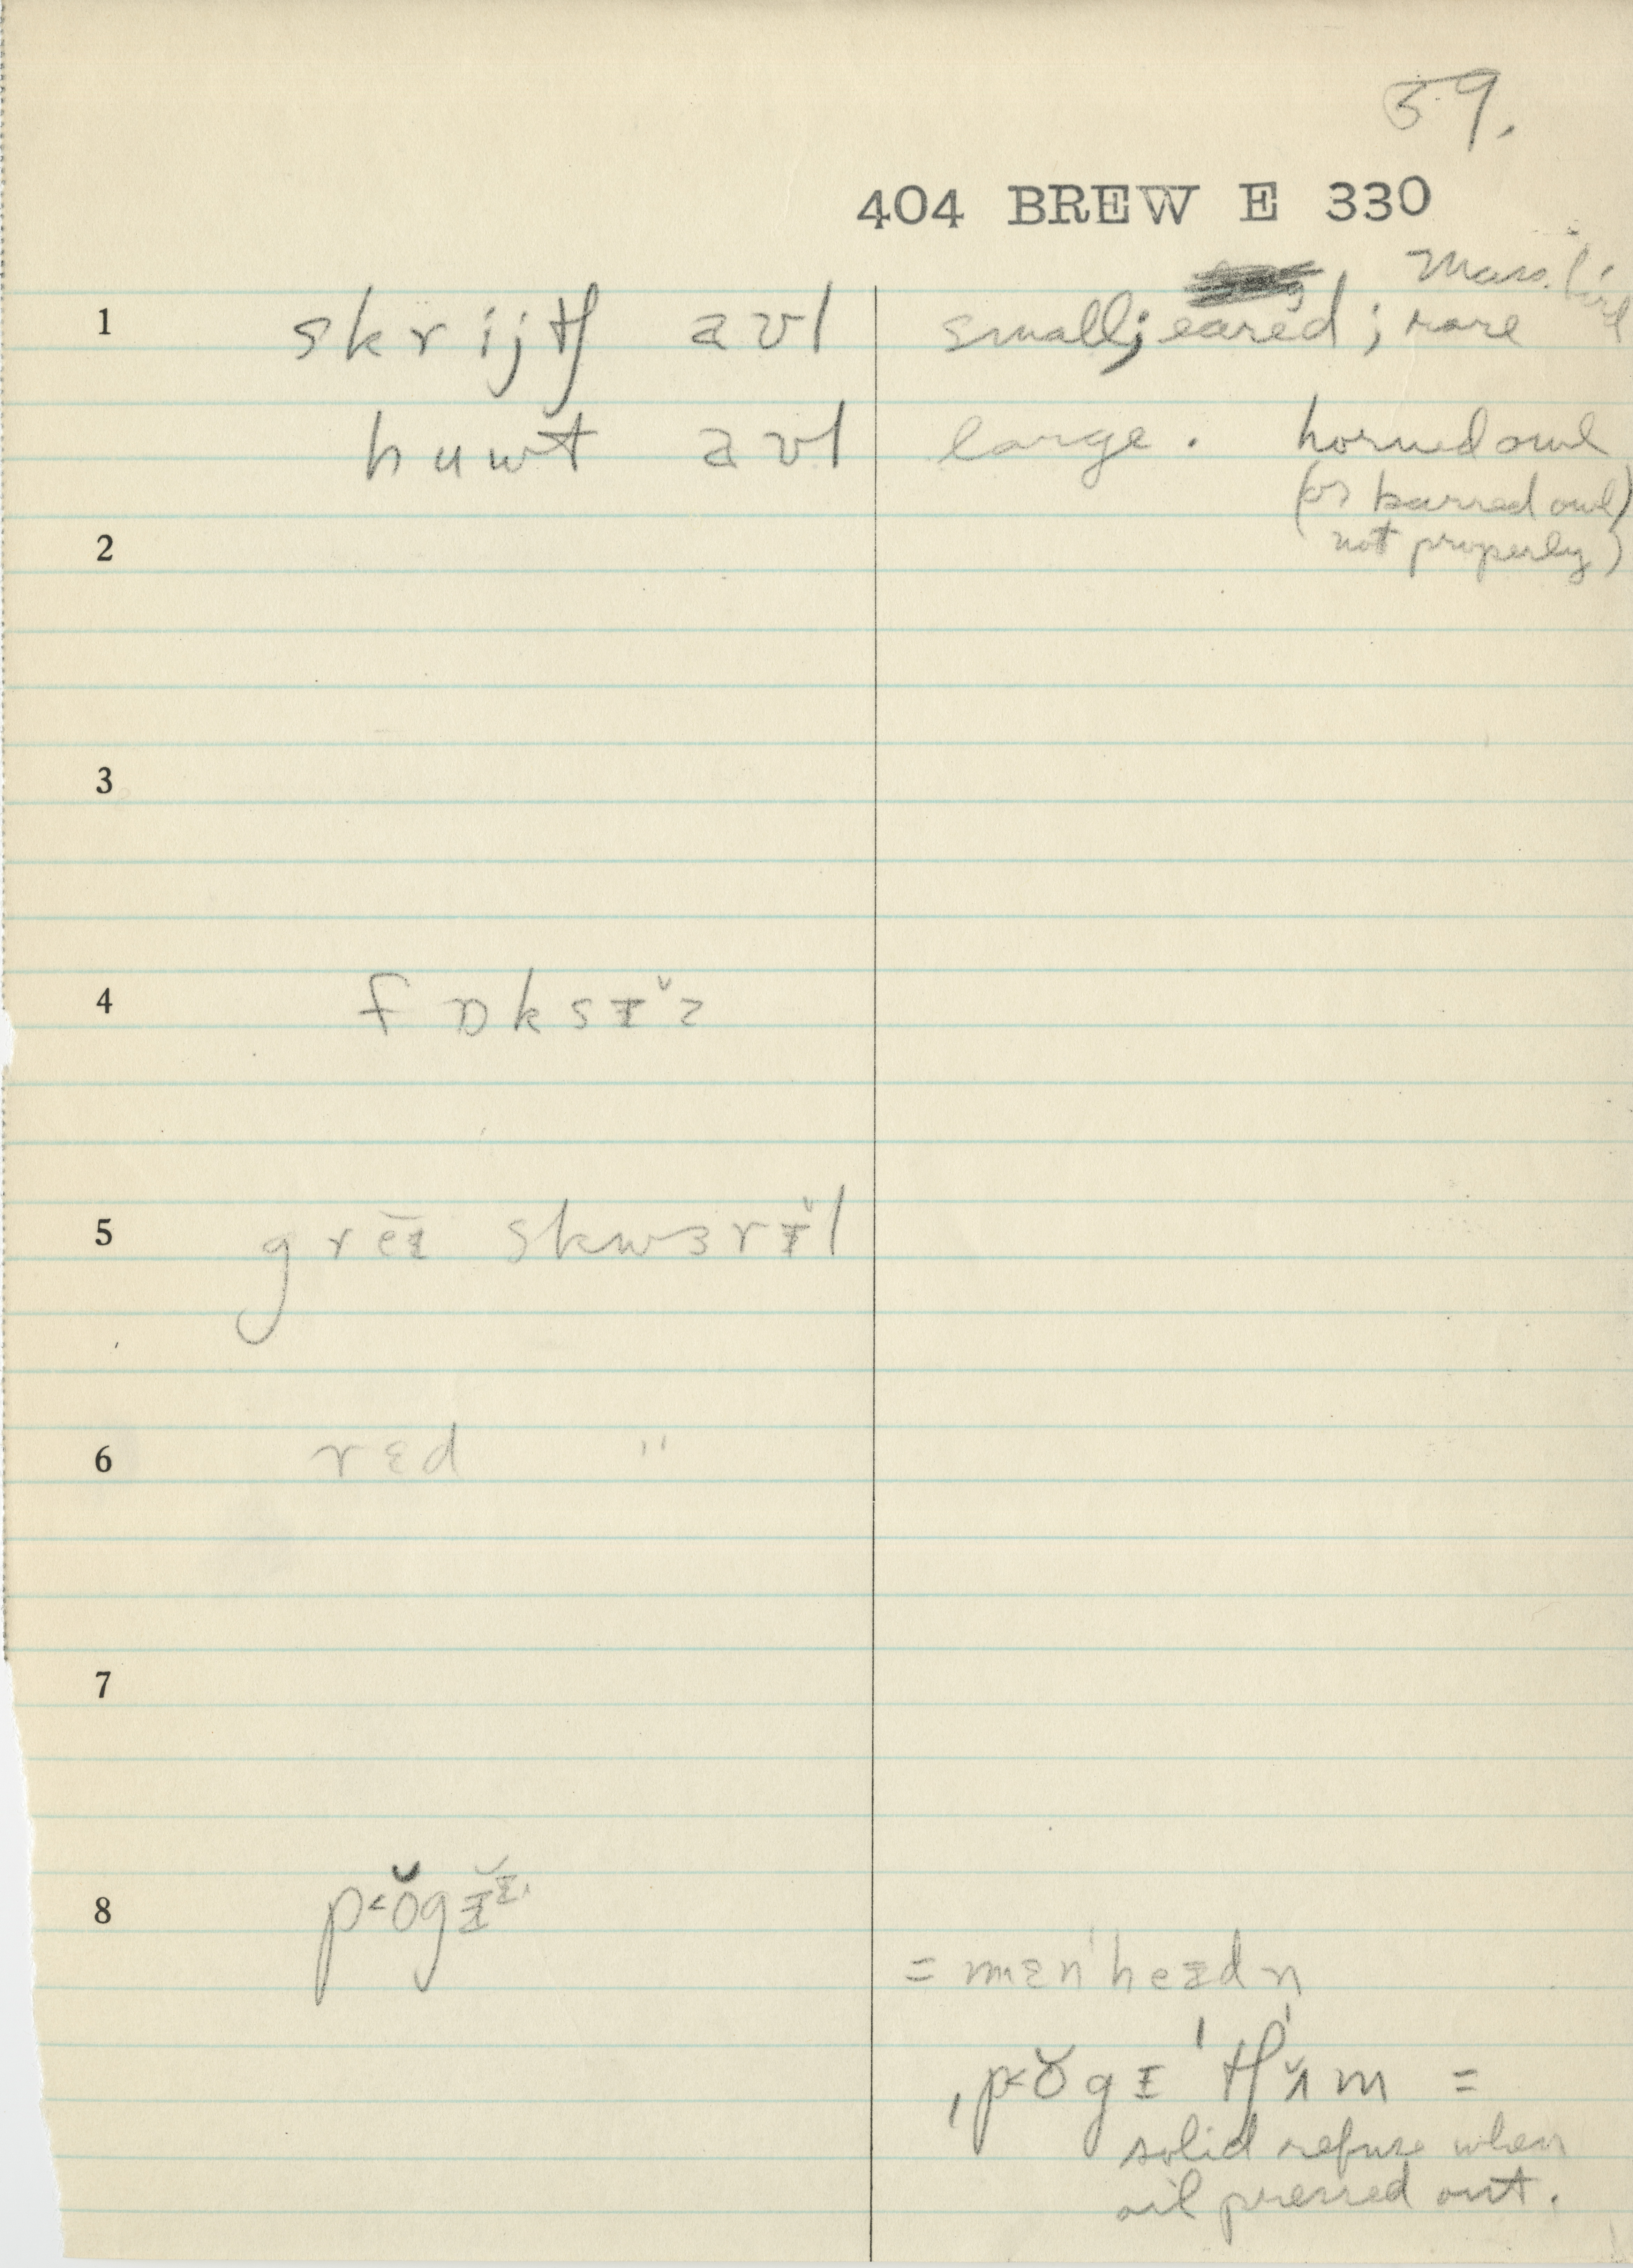 59.
404 BREW E 330
Mass. bird
1 skrijtʃ aʊl small; eared; rare
huwt aʊl large. horned owl
(or barred owl)
2 not properly)
3
4 fɒksɪ̆z
5 grēɪ skwɜrɪ̆l
6 rɛd "
7
8 p˂ŏgɪ̆ɪ̆
= mɛn'heɪdn̩
ˌp˂ŏgɪ 'tʃʌ̆m =
solid refuse when
oil pressed out.